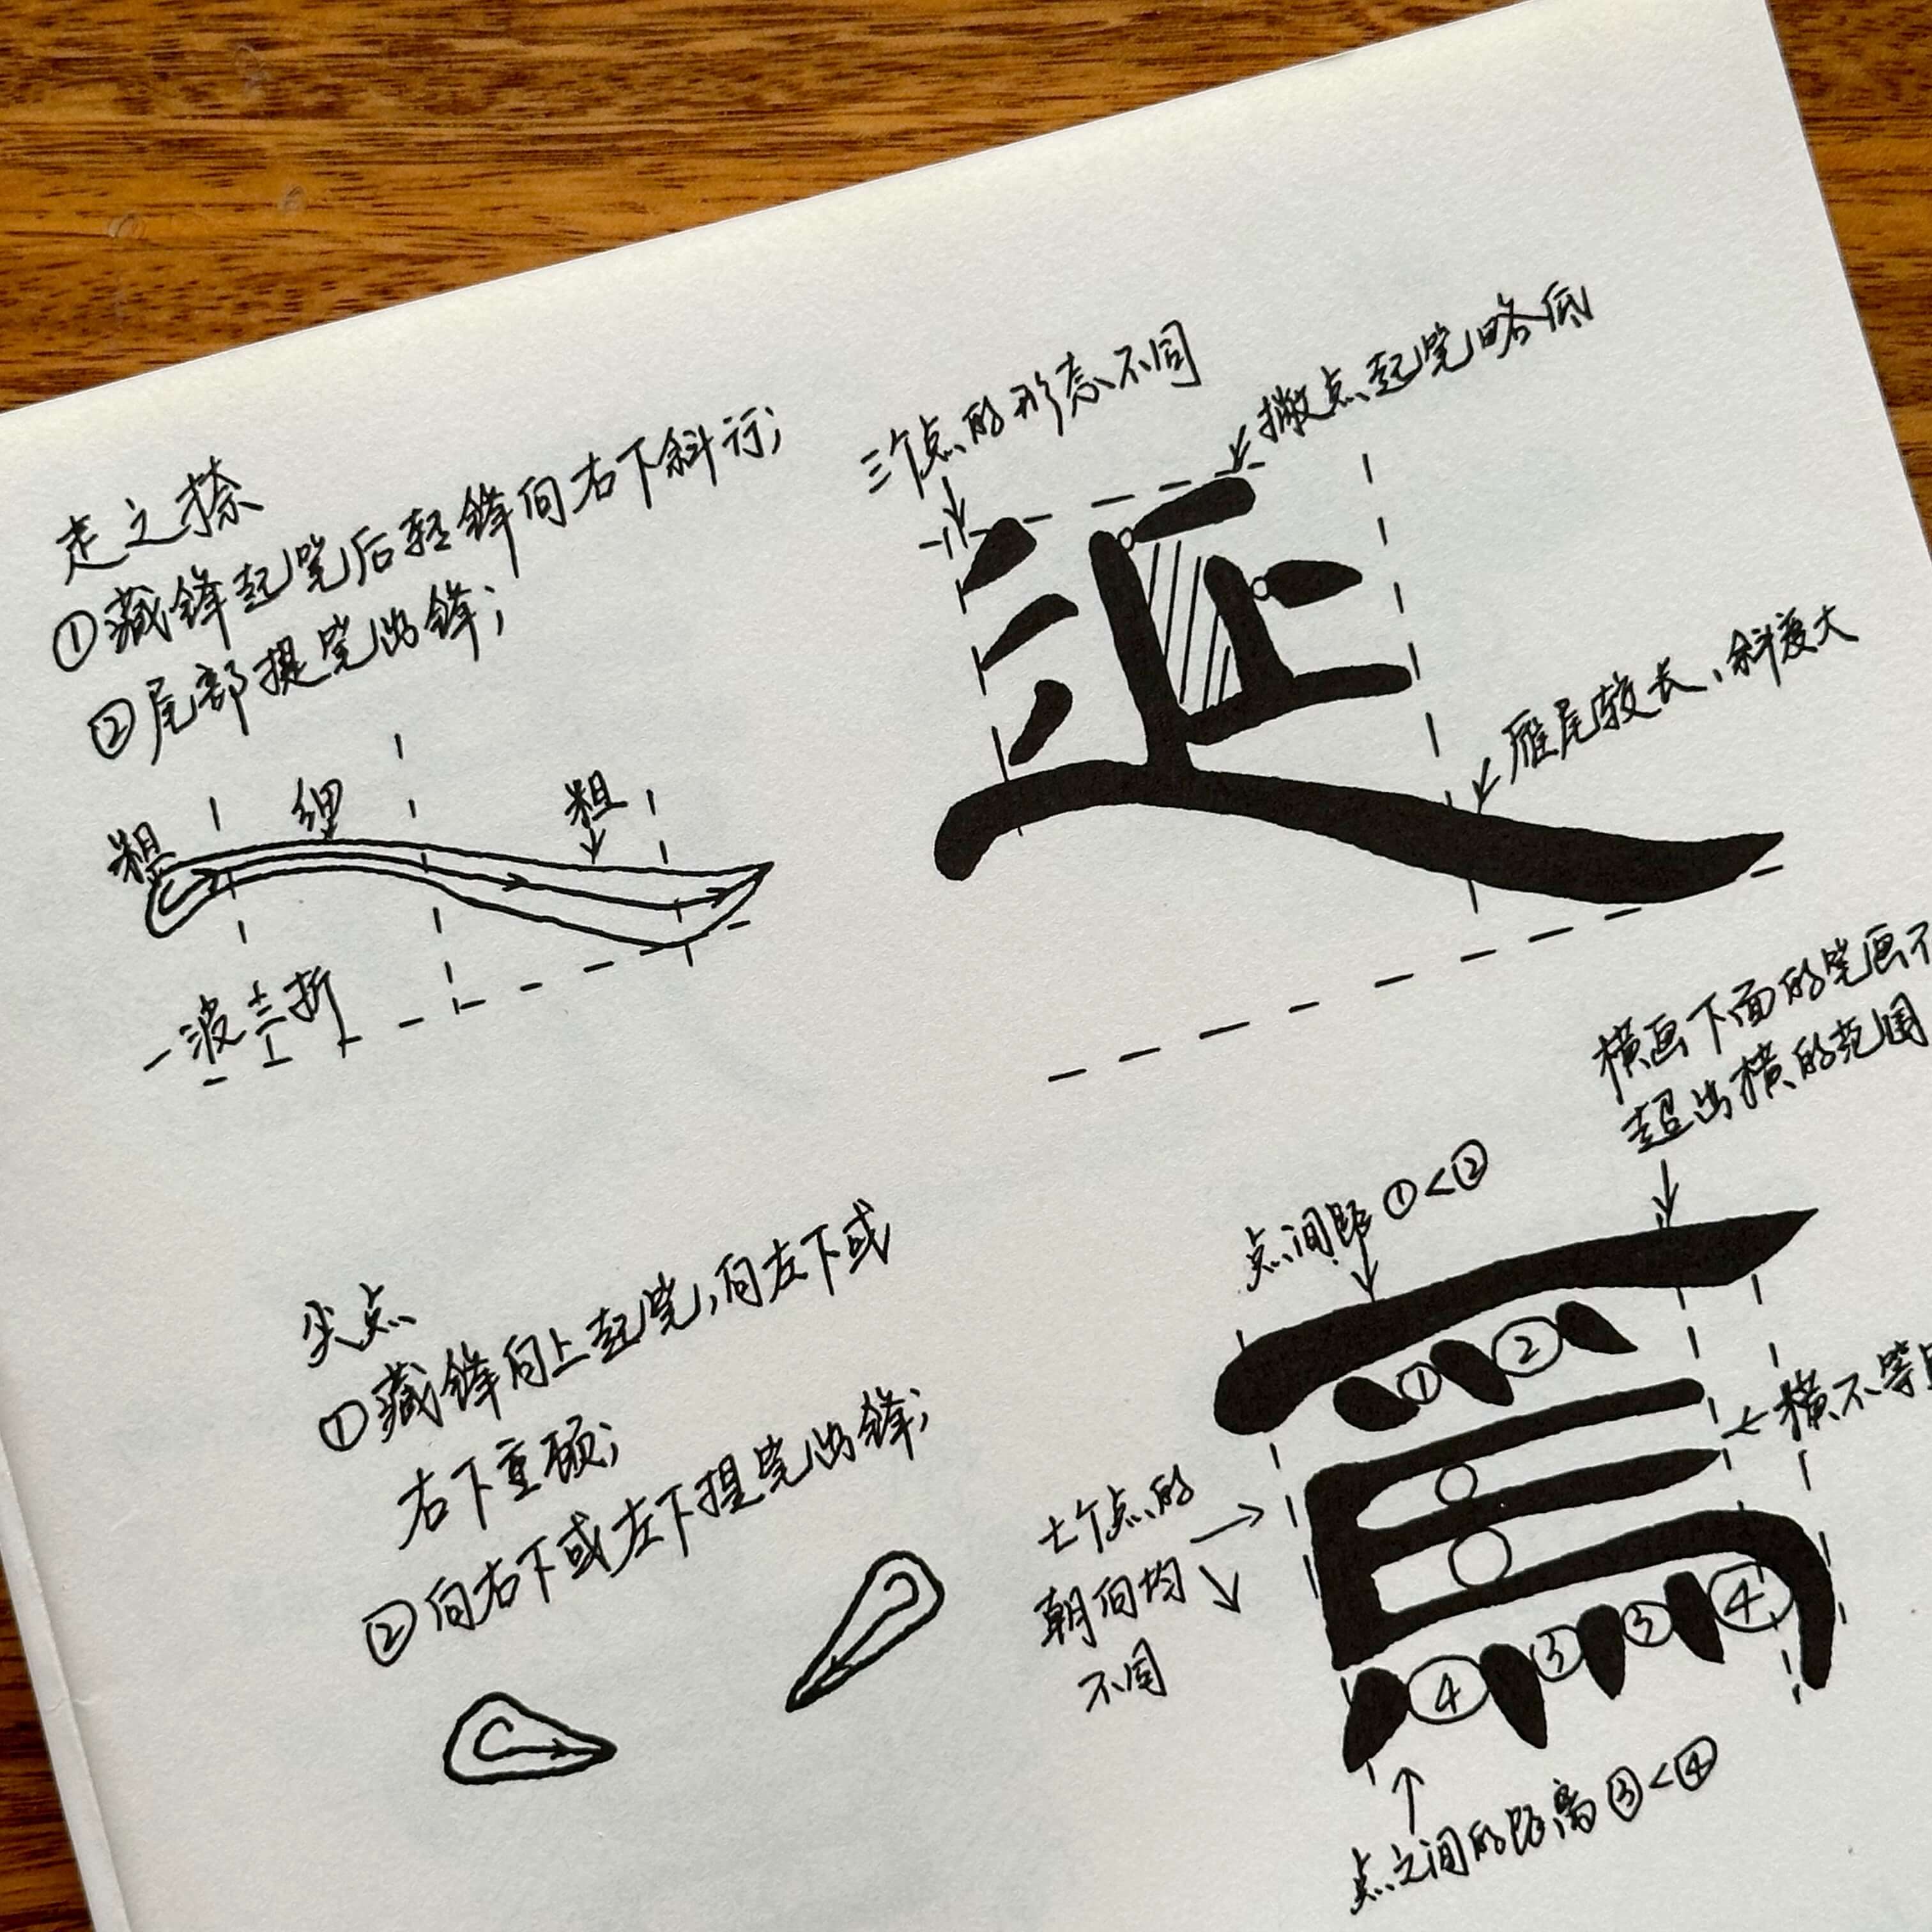 走之捺
①藏锋起笔后轻锋向右下斜行;
②尾部提笔出锋;
粗
细
粗
一波三折
三个点的形态不同
撇点起笔略低
延
雁尾较长,斜度大
尖点
①藏锋向上起笔,向左下或
右下重顿;
②向右下或左下提笔出锋;
横画下面的笔画不
超出横的范围
点间距①<②
①②
焉
横不等
七个点的
朝向均
不同
④③③④
点之间的距离③<④